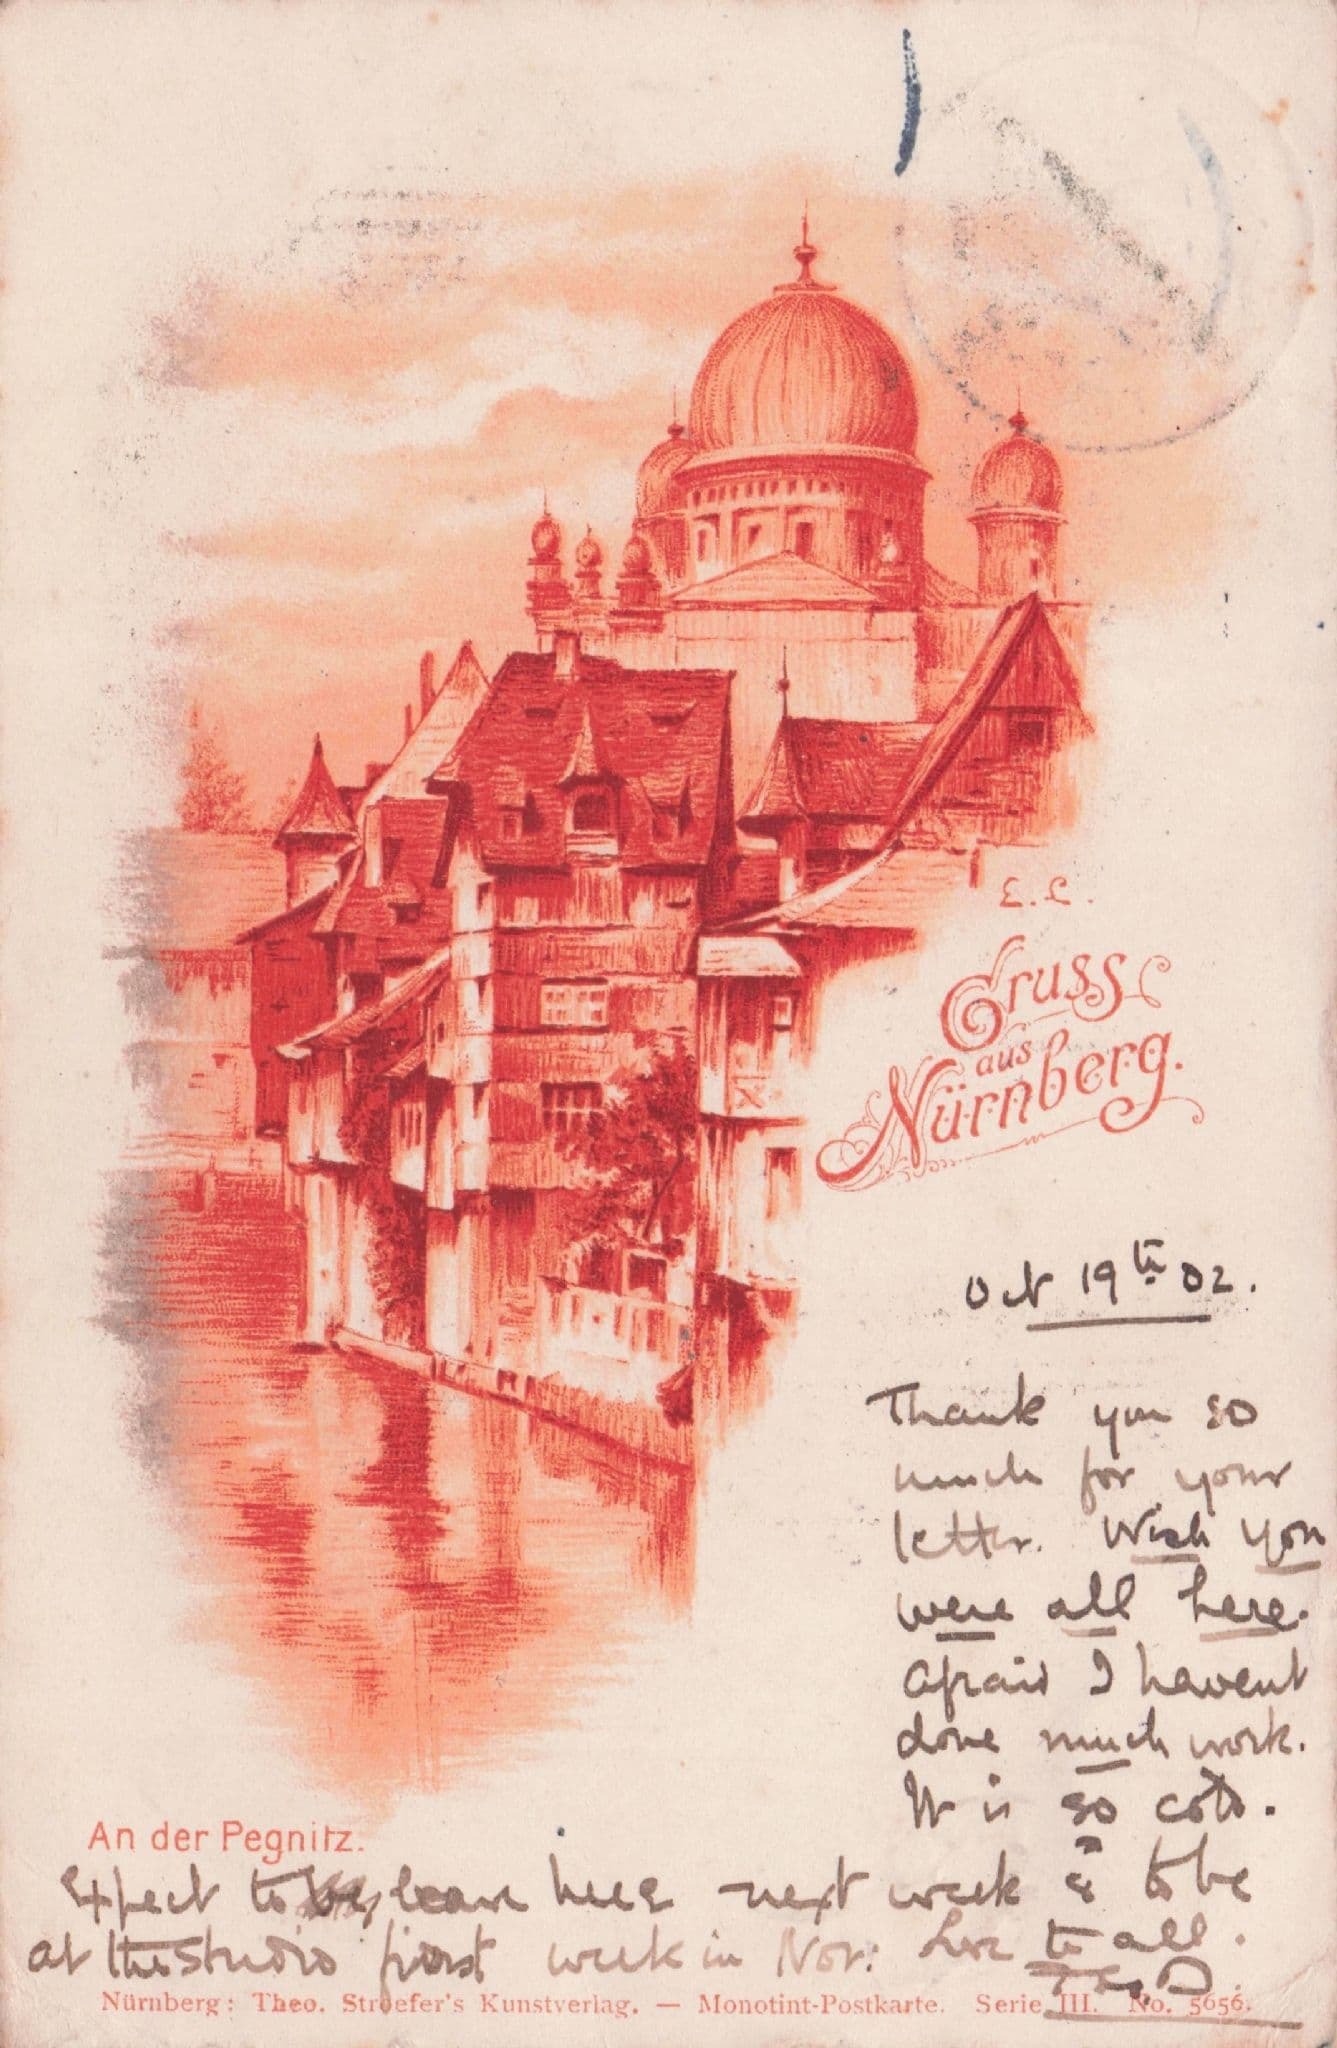 E. L.
Gruss
aus
Nürnberg.
Oct 19th 02.
Thank you so
much for your
letter. Wish you
were all here.
Afraid I havent
done much work.
It is so cold.
An der Pegnitz.
Expect to leave here next week & to be
at the studio first week in Nov: Love to all.
Nürnberg: Theo. Stroefer's Kunstverlag. — Monotint-Postkarte. Serie III. No. 5656.